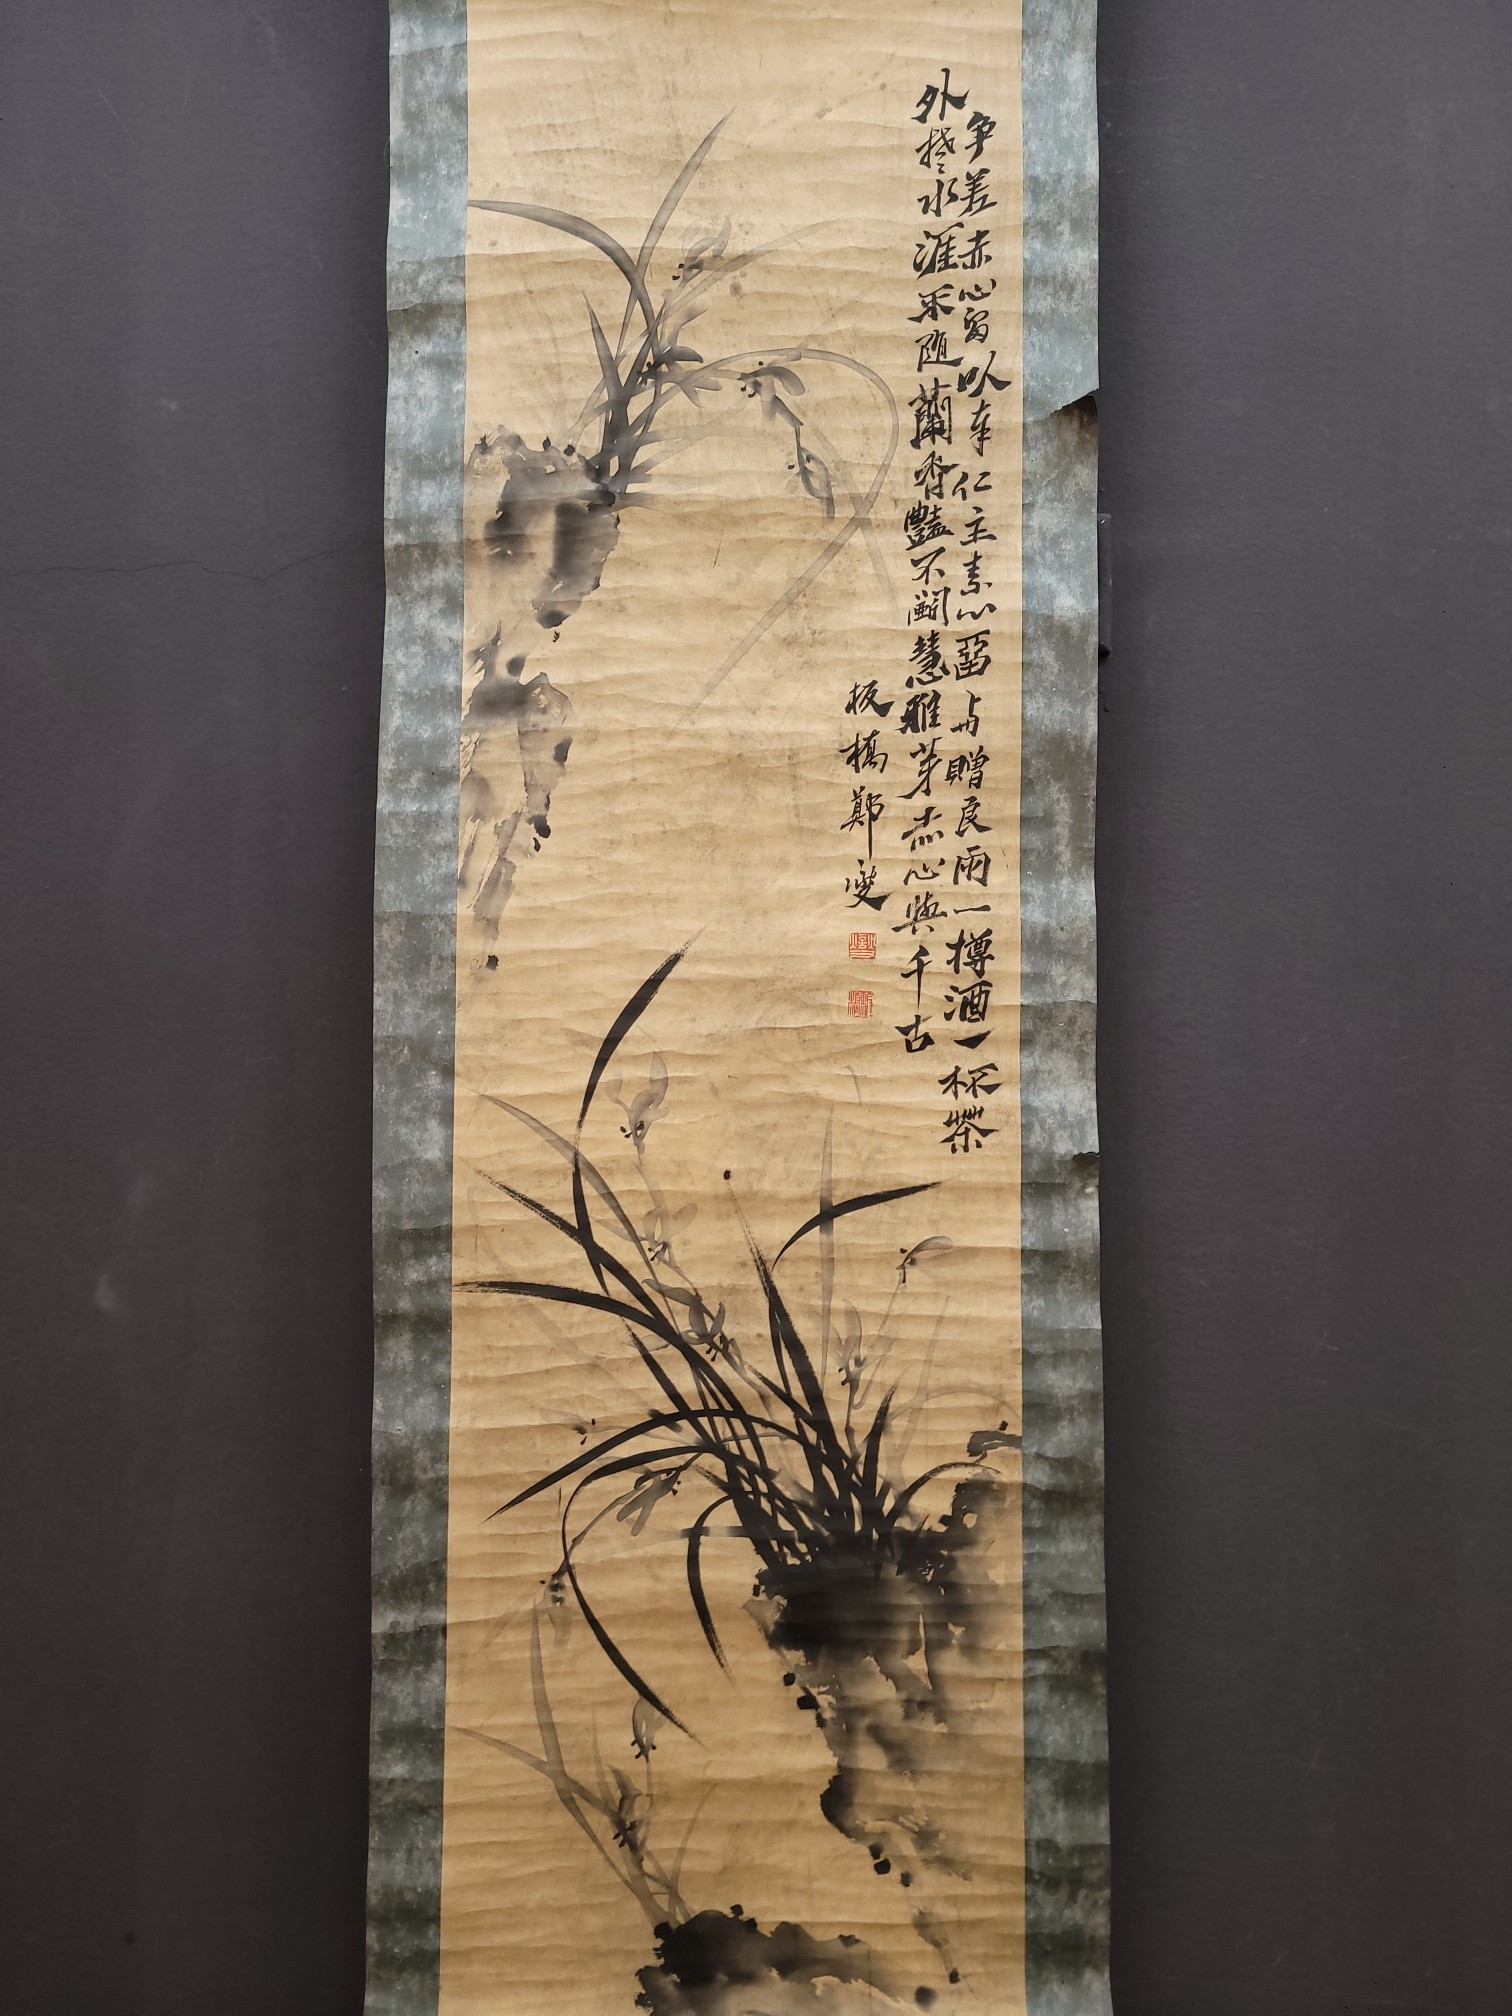 争差赤心留以奉仁主素心留与赠良雨一樽酒一杯茶
外搓水涯不随兰香艳不斗慧雅芽赤心与千古
板橋鄭燮